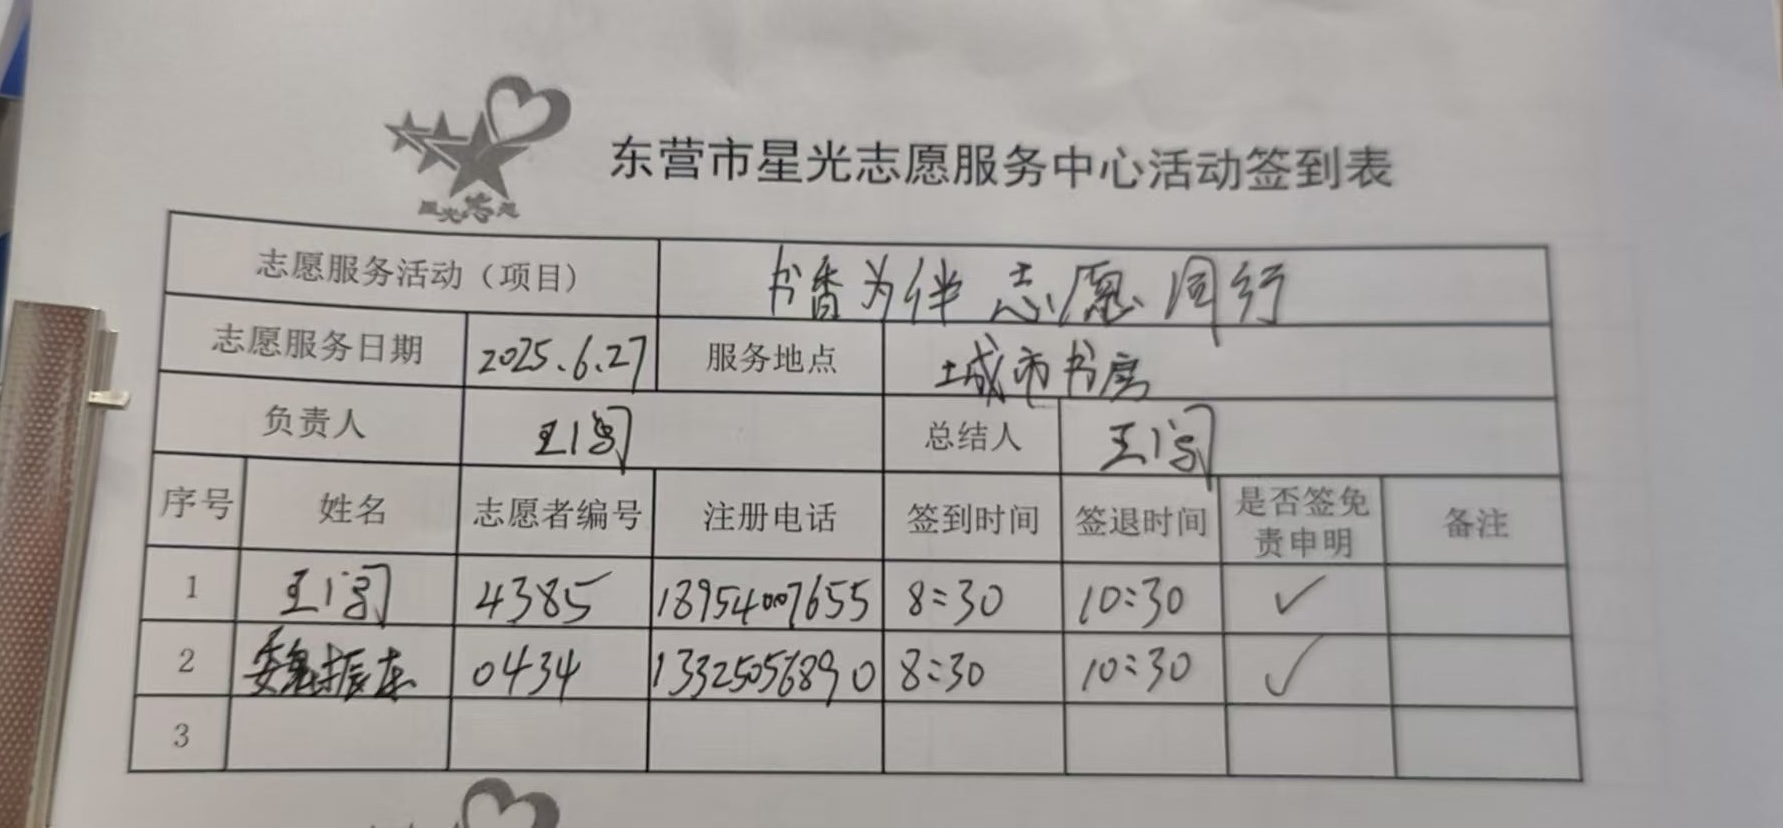 星光志愿
东营市星光志愿服务中心活动签到表
志愿服务活动（项目） 书香为伴 志愿同行
志愿服务日期 2025.6.27 服务地点 城市书房
负责人 王闯 总结人 王闯
序号 姓名 志愿者编号 注册电话 签到时间 签退时间 是否签免责申明 备注
1 王闯 4385 18954007655 8:30 10:30 ✓
2 魏振东 0434 13325056890 8:30 10:30 ✓
3